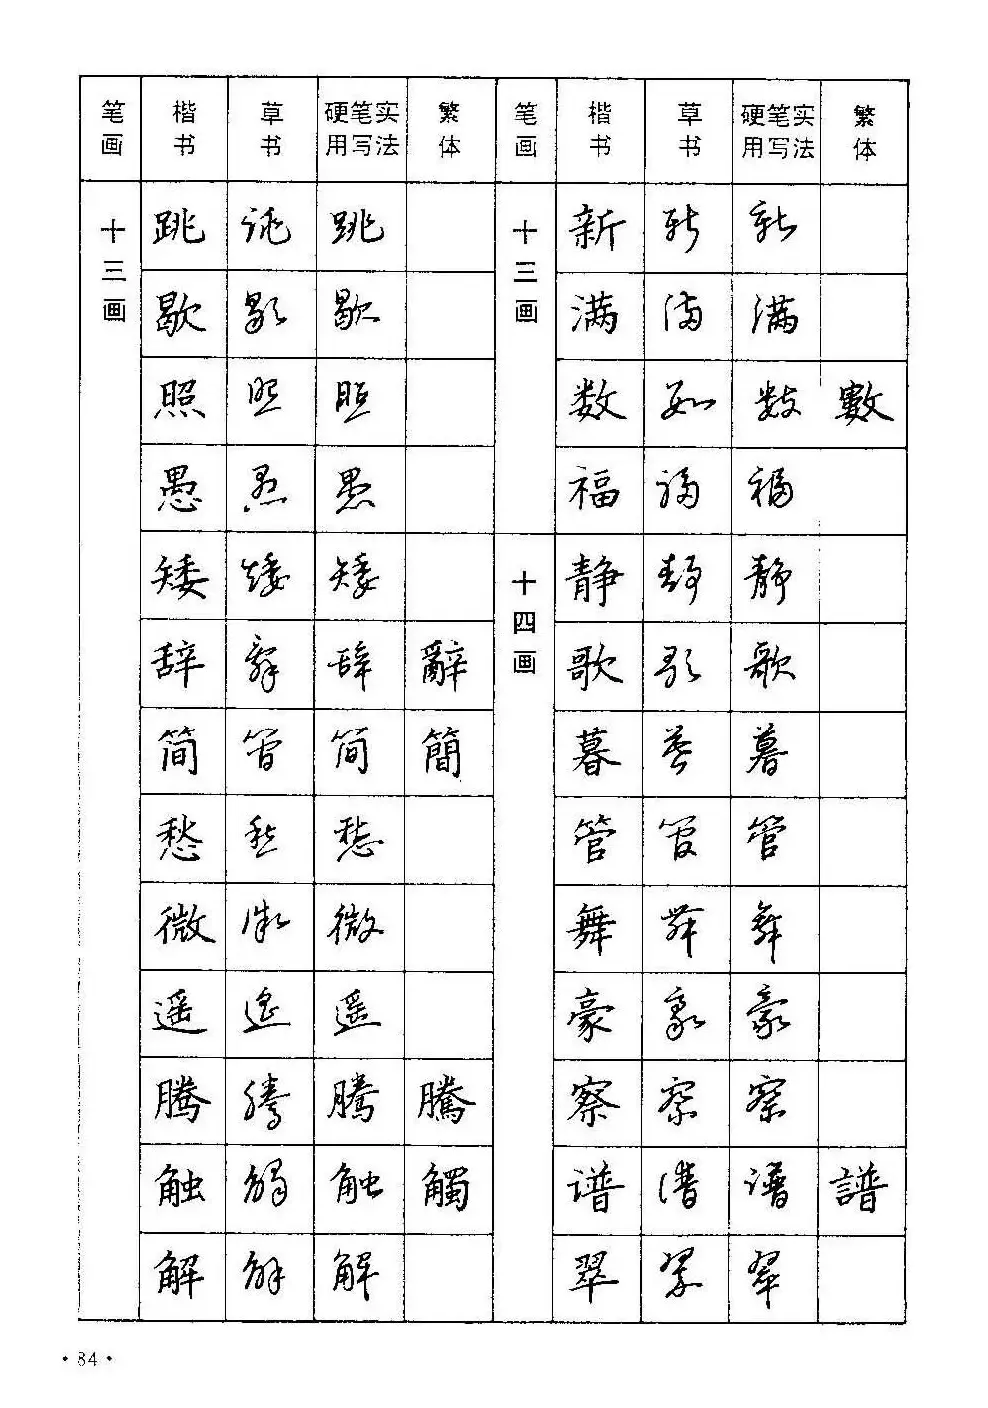 笔画 楷书 草书 硬笔实用写法 繁体 笔画 楷书 草书 硬笔实用写法 繁体
十三画 跳 跳 跳 十三画 新 新 新
歇 歇 歇 满 满 满
照 照 照 数 数 数 數
愚 愚 愚 福 福 福
矮 矮 矮 十四画 静 静 静
辞 辞 辞 辭 歌 歌 歌
简 简 简 簡 暮 暮 暮
愁 愁 愁 管 管 管
微 微 微 舞 舞 舞
遥 遥 遥 豪 豪 豪
腾 腾 腾 騰 察 察 察
触 触 触 觸 谱 谱 谱 譜
解 解 解 翠 翠 翠
·84·